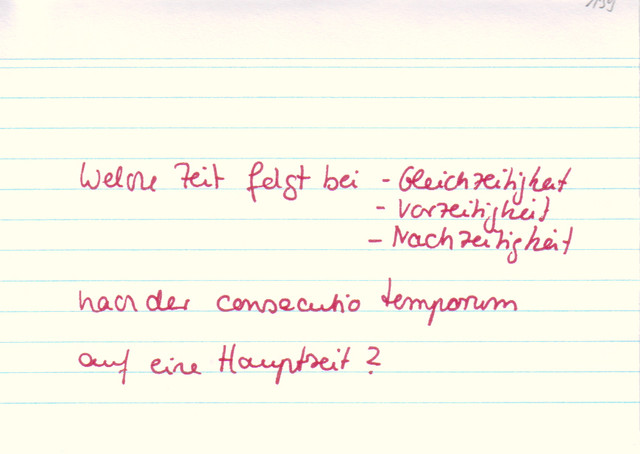 Welche Zeit folgt bei - Gleichzeitigkeit
- Vorzeitigkeit
- Nachzeitigkeit
nach der consecutio temporum
auf eine Hauptzeit ?